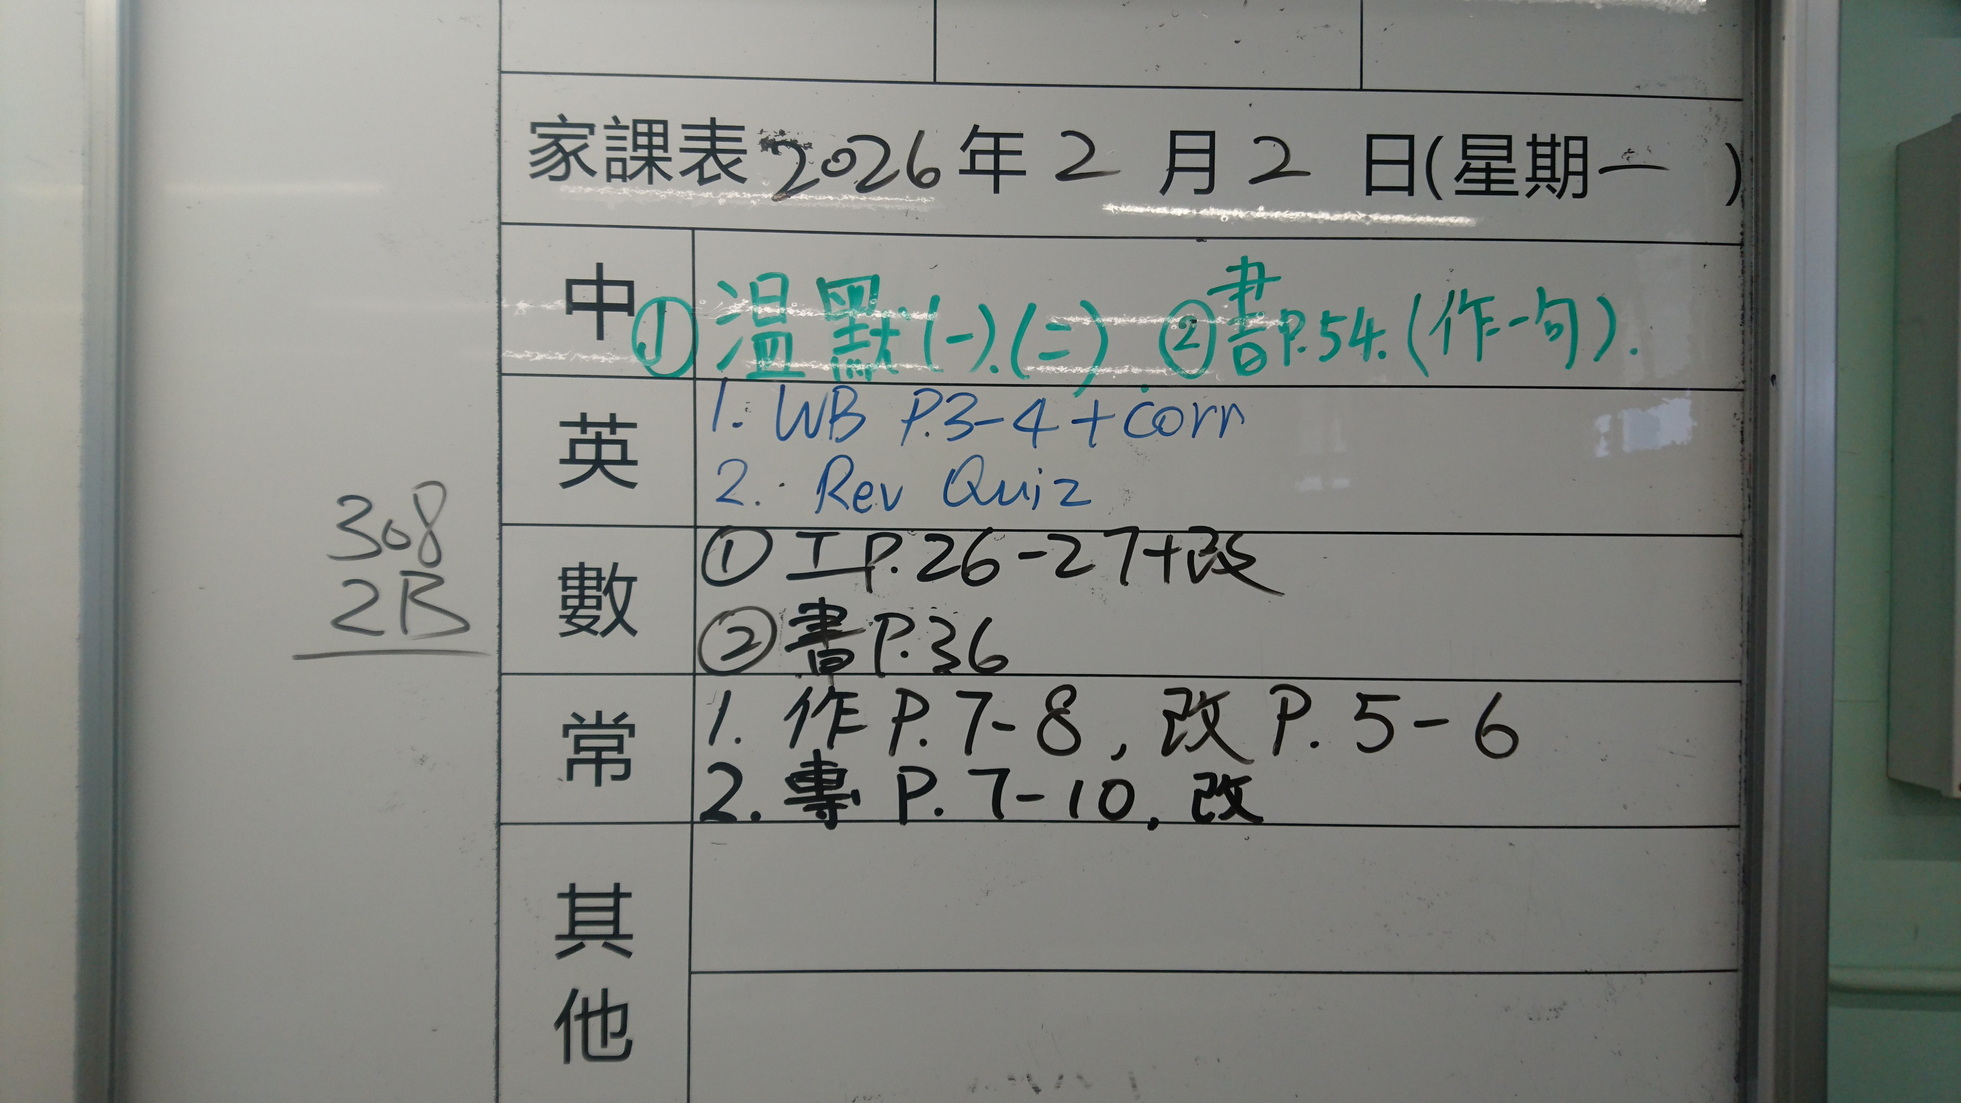 家課表 2026年2月2日(星期一)
中 ①溫默(一).(二) ②書P.54.(作一句).
英 1. WB P.3-4+corr
2. Rev Quiz
數 ①工P.26-27+改
②書P.36
常 1. 作P.7-8, 改P.5-6
2. 專 P.7-10, 改
其他
308
2B